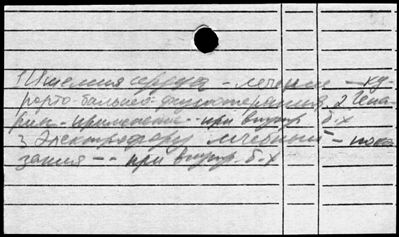 1 Ишемия сердца - лечение - ку
рорто-бальнео-физиотерапия 2 Гепа
рин - применение - при внутр. б-х
3 Электрофорез лечебный - пока
зания - - при внутр. б-х